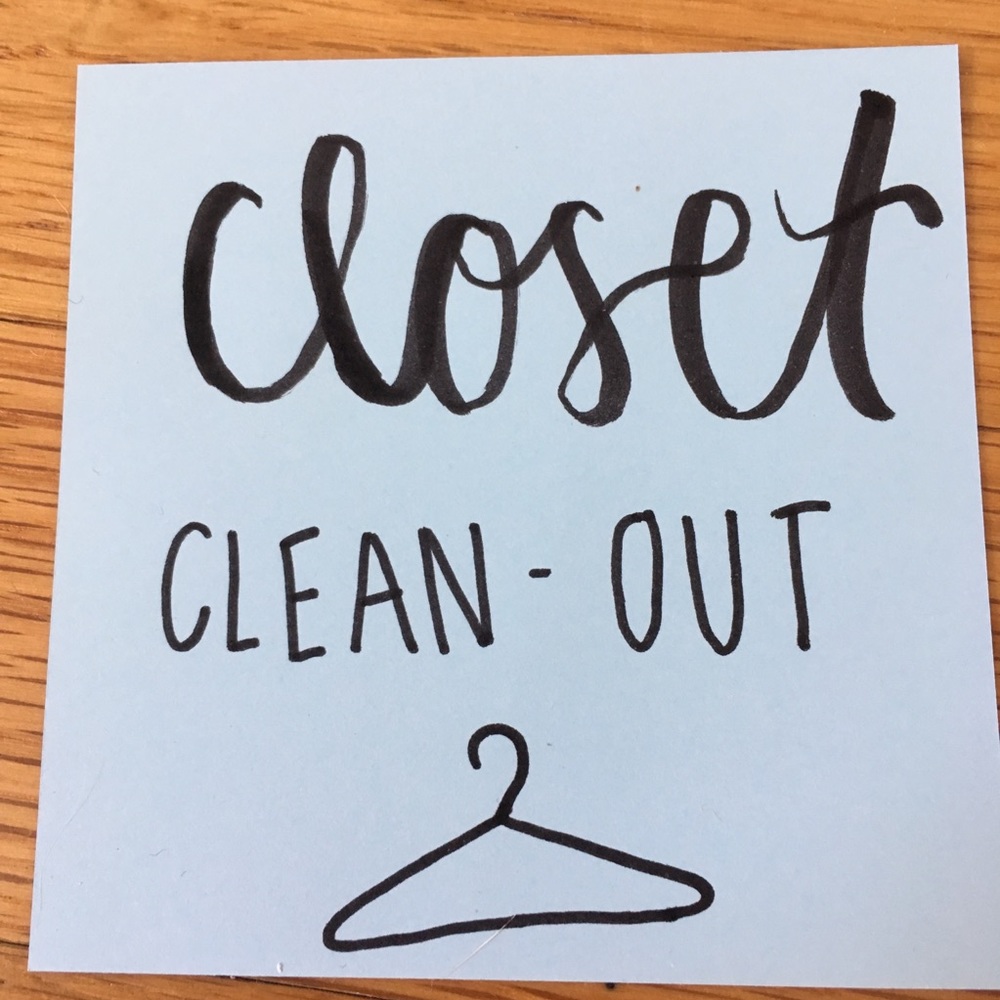 closet
CLEAN-OUT